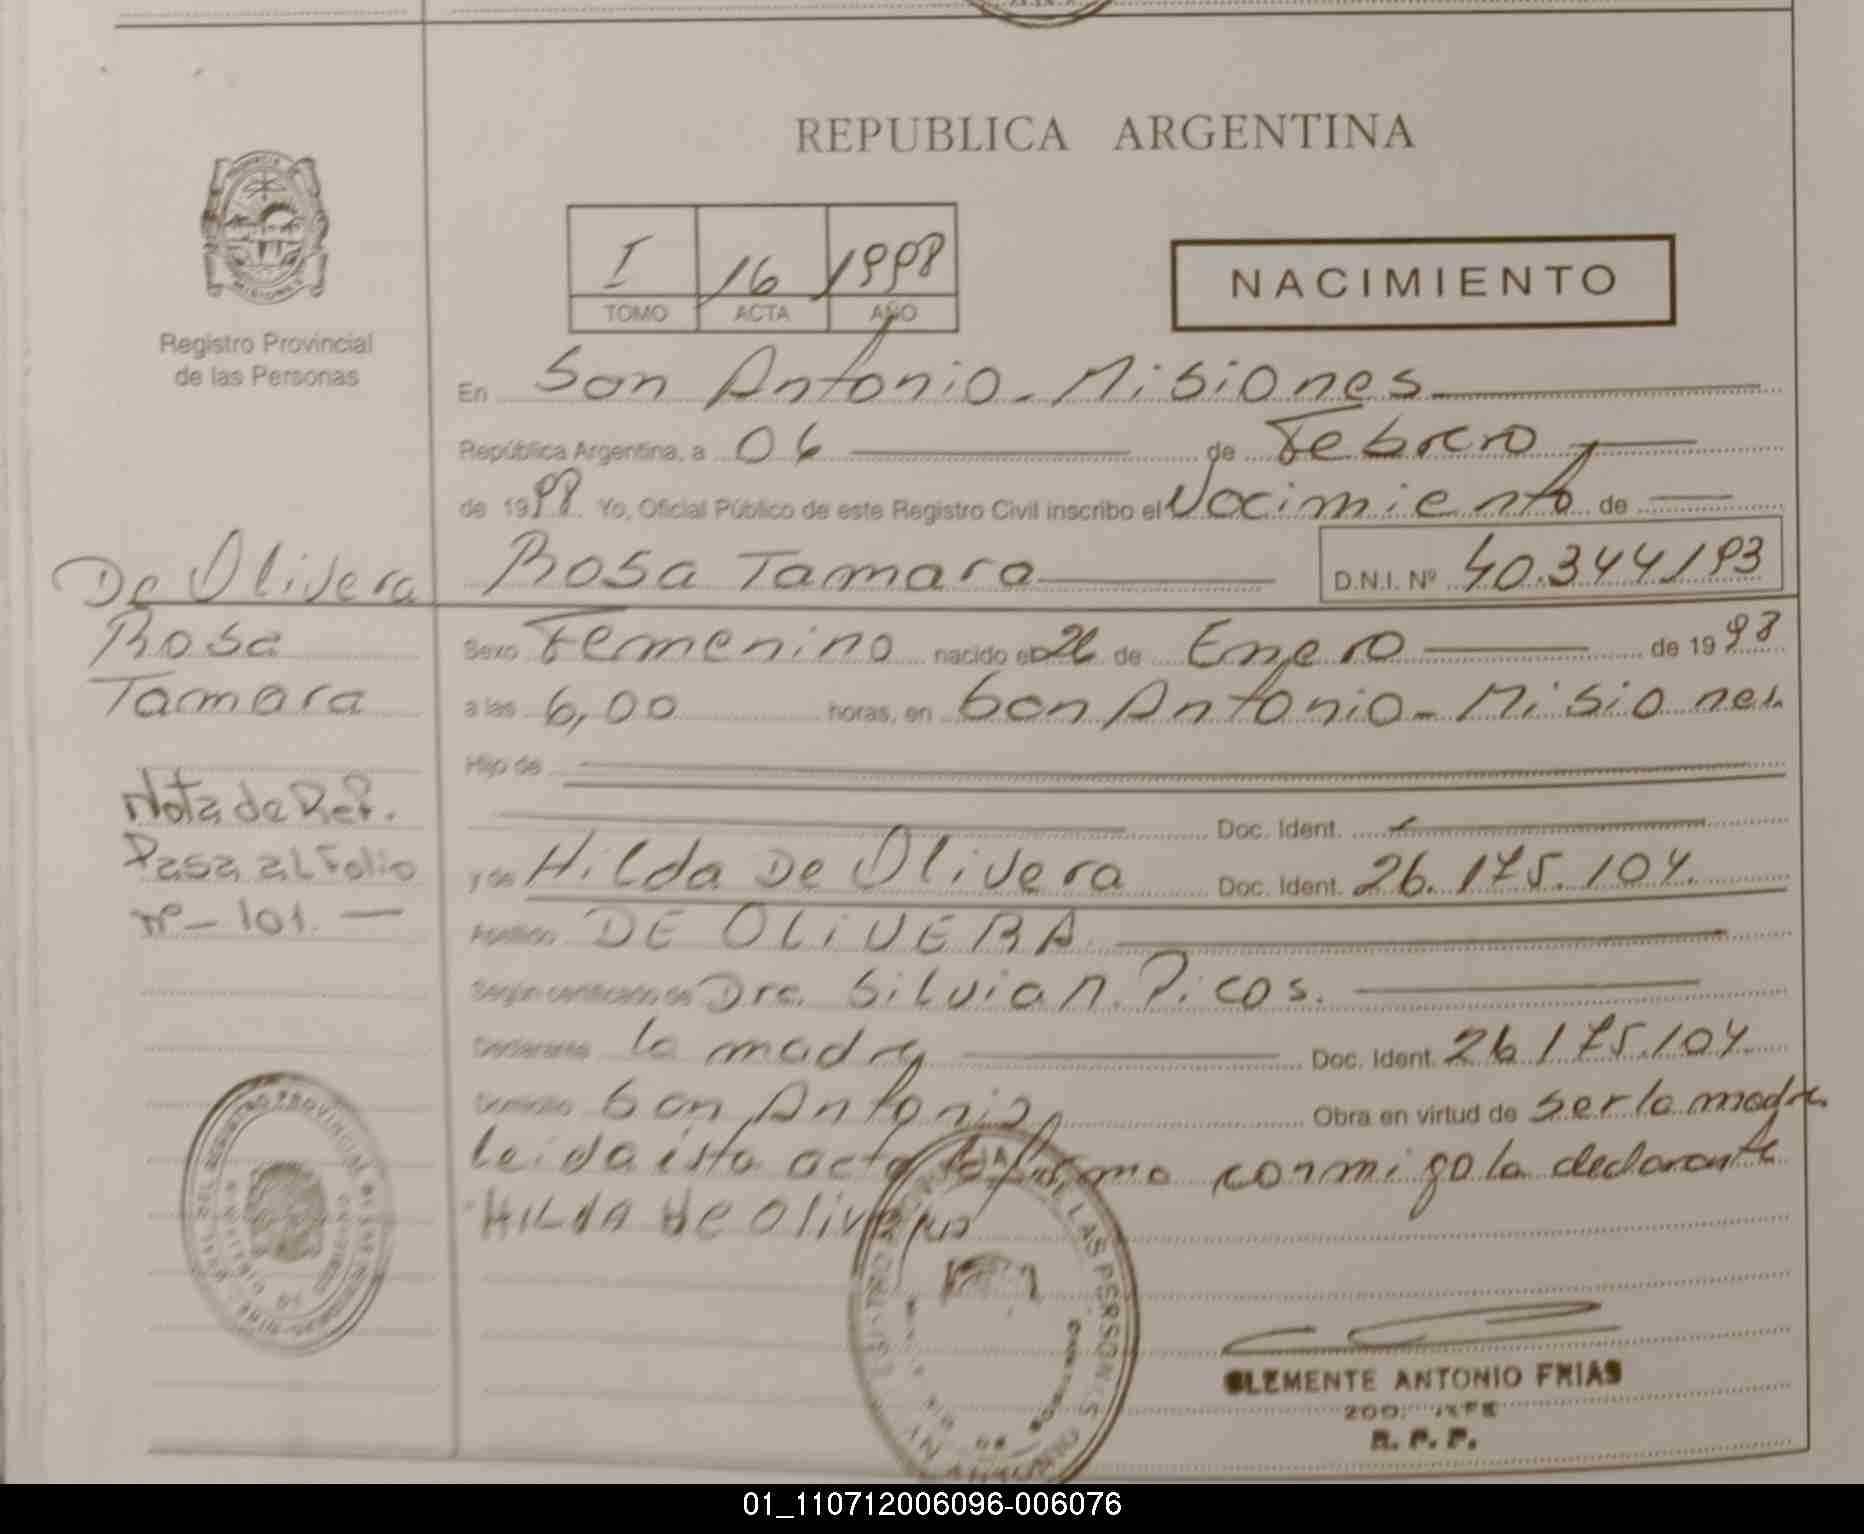 REPUBLICA ARGENTINA
I 16 1998
TOMO ACTA AÑO
NACIMIENTO
MISIONES
Registro Provincial
de las Personas
En San Antonio - Misiones
República Argentina, a 06 de Febrero
de 1998 Yo, Oficial Público de este Registro Civil inscribo el Nacimiento de
Rosa Tamara D.N.I. Nº 40.344.193
De Olivera
Rosa
Tamara
Sexo Femenino nacido el 26 de Enero de 1998
a las 6,00 horas, en San Antonio - Misiones.
Hijo de
Doc. Ident.
Nota de Ref.
Pasa al Folio
nº - 101. —
y de Hilda De Olivera Doc. Ident. 26.175.104.
Apellido DE OLIVERA
Según certificado de Dra. Silvia n. Picos.
Declarante la madre Doc. Ident. 26.175.104
Domicilio San Antonio, Obra en virtud de ser la madre
leida esta acta la firma conmigo la declarante
HILDA de Olivera
CLEMENTE ANTONIO FRIAS
R. P. P.
01_110712006096-006076